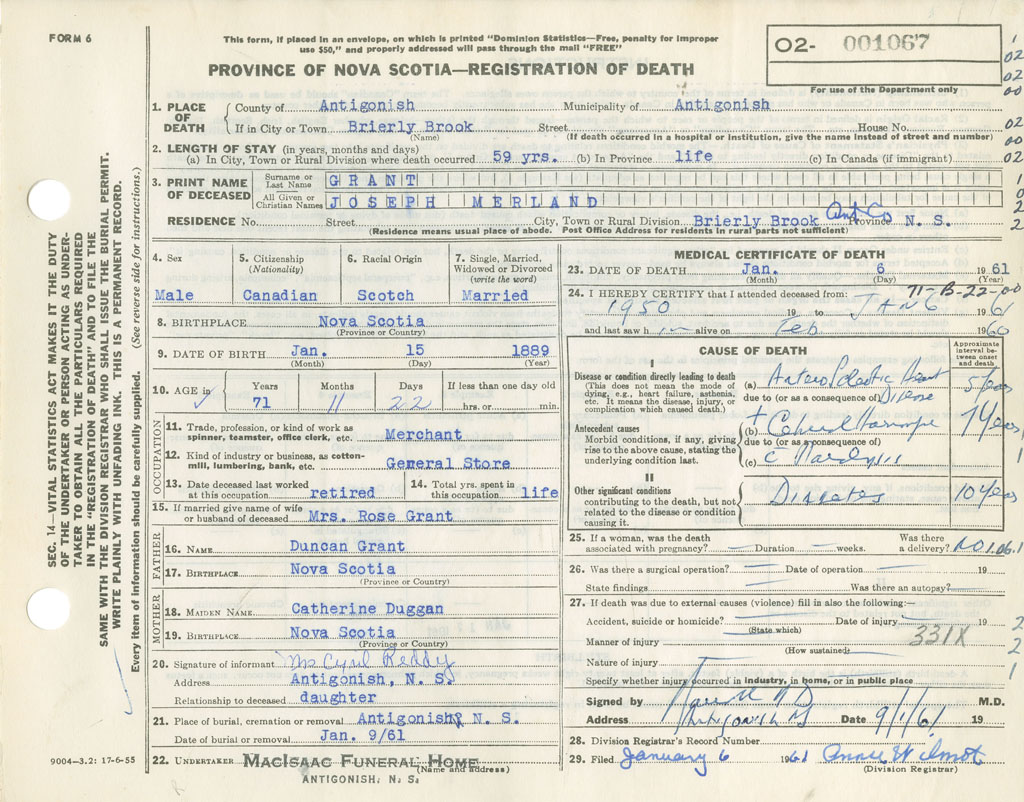 FORM 6
This form, if placed in an envelope, on which is printed "Dominion Statistics—Free, penalty for improper
use $50," and properly addressed will pass through the mail "FREE"
PROVINCE OF NOVA SCOTIA—REGISTRATION OF DEATH
O2- 001067
For use of the Department only
1
02
02
00
02
00
02
1
0
2
2
SEC. 14—VITAL STATISTICS ACT MAKES IT THE DUTY
OF THE UNDERTAKER OR PERSON ACTING AS UNDER-
TAKER TO OBTAIN ALL THE PARTICULARS REQUIRED
IN THE "REGISTRATION OF DEATH" AND TO FILE THE
SAME WITH THE DIVISION REGISTRAR WHO SHALL ISSUE THE BURIAL PERMIT.
WRITE PLAINLY WITH UNFADING INK. THIS IS A PERMANENT RECORD.
Every item of information should be carefully supplied. (See reverse side for instructions.)
1. PLACE OF DEATH County of Antigonish Municipality of Antigonish
If in City or Town Brierly Brook Street House No.
(Name) (If death occurred in a hospital or institution, give the name instead of street and number)
2. LENGTH OF STAY (in years, months and days)
(a) In City, Town or Rural Division where death occurred 59 yrs. (b) In Province life (c) In Canada (if immigrant)
3. PRINT NAME OF DECEASED Surname or Last Name GRANT
All Given or Christian Names JOSEPH MERLAND
RESIDENCE No. Street City, Town or Rural Division Brierly Brook Ant Co Province N. S.
(Residence means usual place of abode. Post Office Address for residents in rural parts not sufficient)
4. Sex 5. Citizenship (Nationality) 6. Racial Origin 7. Single, Married, Widowed or Divorced (write the word)
Male Canadian Scotch Married
8. BIRTHPLACE Nova Scotia
(Province or Country)
9. DATE OF BIRTH Jan. 15 1889
(Month) (Day) (Year)
10. AGE in Years Months Days If less than one day old
71 11 22 hrs. or min.
OCCUPATION
11. Trade, profession, or kind of work as
spinner, teamster, office clerk, etc. Merchant
12. Kind of industry or business, as cotton-
mill, lumbering, bank, etc. General Store
13. Date deceased last worked at this occupation retired
14. Total yrs. spent in this occupation life
15. If married give name of wife
or husband of deceased Mrs. Rose Grant
FATHER
16. NAME Duncan Grant
17. BIRTHPLACE Nova Scotia
(Province or Country)
MOTHER
18. MAIDEN NAME Catherine Duggan
19. BIRTHPLACE Nova Scotia
(Province or Country)
20. Signature of informant Mrs Cyril Reddy
Address Antigonish, N. S.
Relationship to deceased daughter
21. Place of burial, cremation or removal Antigonish, N. S.
Date of burial or removal Jan. 9/61
22. UNDERTAKER MACISAAC FUNERAL HOME
(Name and address)
ANTIGONISH, N. S.
9004—3.2: 17-6-55
MEDICAL CERTIFICATE OF DEATH
23. DATE OF DEATH Jan. 6 1961
(Month) (Day) (Year)
71-B-22-00
24. I HEREBY CERTIFY that I attended deceased from:
1950 19 to JAN 6 1961
and last saw h im alive on Feb 1960
CAUSE OF DEATH
Approximate interval between onset and death
I
Disease or condition directly leading to death
(This does not mean the mode of
dying, e.g., heart failure, asthenia,
etc. It means the disease, injury, or
complication which caused death.)
(a) Heart
due to (or as a consequence of) Disease
5 years
Antecedent causes
Morbid conditions, if any, giving
rise to the above cause, stating the
underlying condition last.
(b)
due to (or as a consequence of)
(c)
II
Other significant conditions
contributing to the death, but not
related to the disease or condition
causing it.
Diabetes 10 years
25. If a woman, was the death
associated with pregnancy? — Duration — weeks. Was there a delivery? NO
26. Was there a surgical operation? — Date of operation — 19
State findings Was there an autopsy?
27. If death was due to external causes (violence) fill in also the following:—
Accident, suicide or homicide? Date of injury 19
(State which)
331X
Manner of injury
(How sustained)
Nature of injury
Specify whether injury occurred in industry, in home, or in public place
Signed by M.D.
Address Antigonish NS Date 9/1/61 19
28. Division Registrar's Record Number
29. Filed January 6 1961 Annie Wilmot
(Division Registrar)